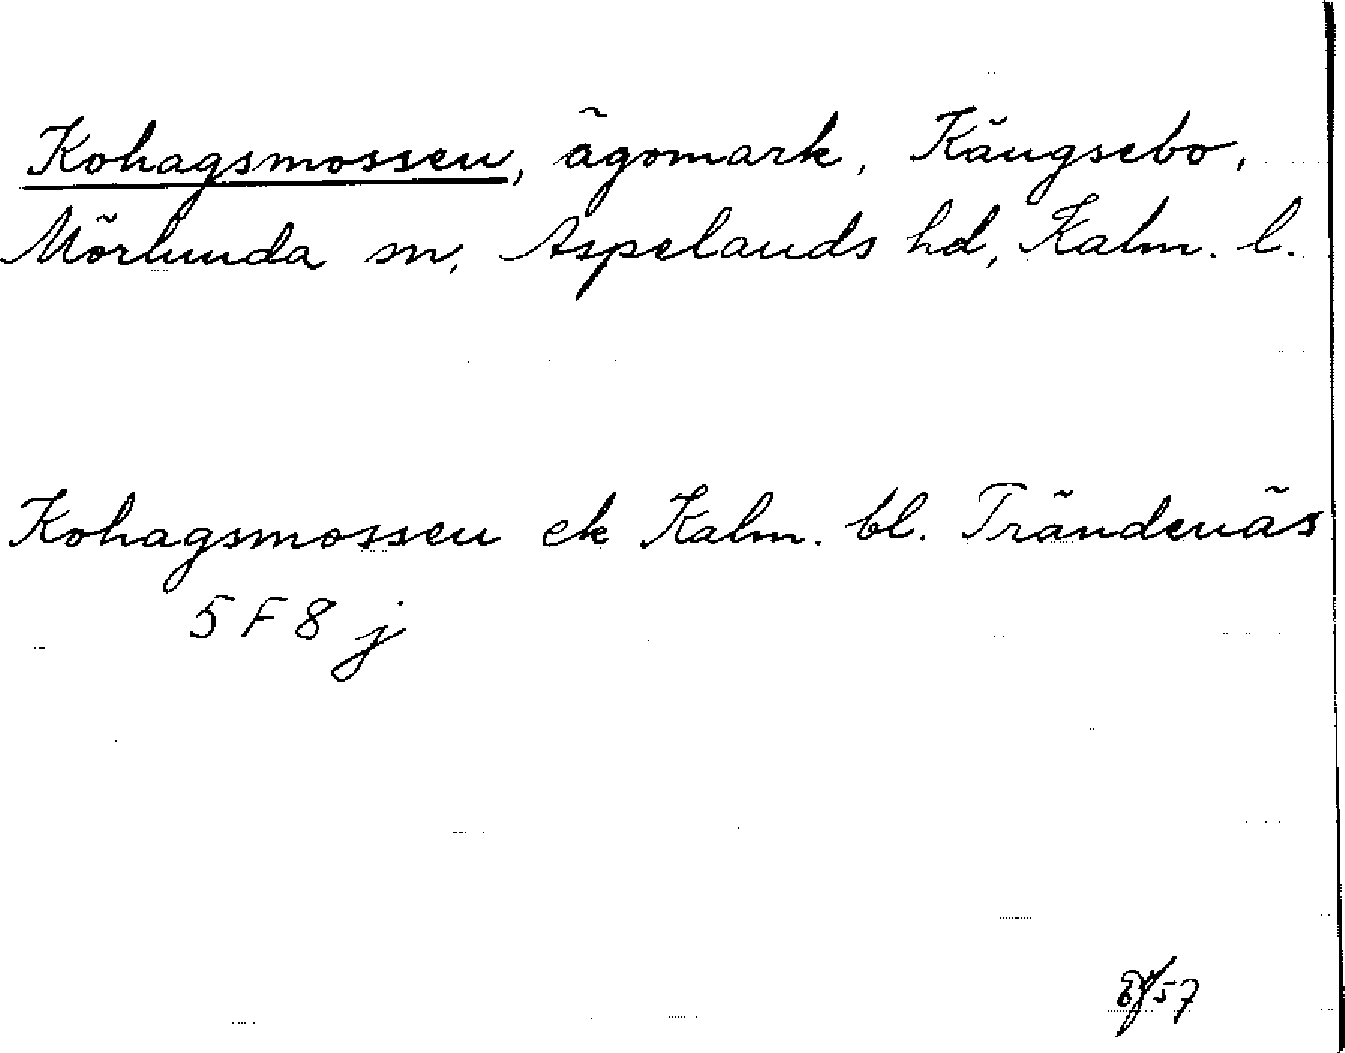 Kohagsmossen, ägomark, Kängsebo,
Mörlunda sn, Aspelands hd, Kalm. l.
Kohagsmossen ek Kalm. bl. Trändenäs
5 F 8 j
57